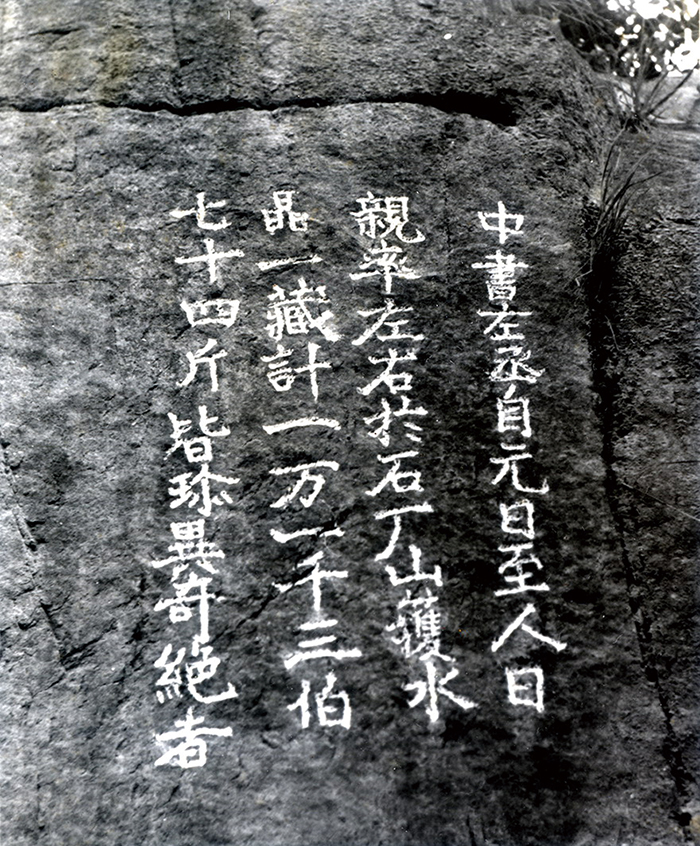 中書左丞自元日至人日
親率左右於石丁山獲水
晶一藏計一万一千三伯
七十四斤皆珎異奇絕者